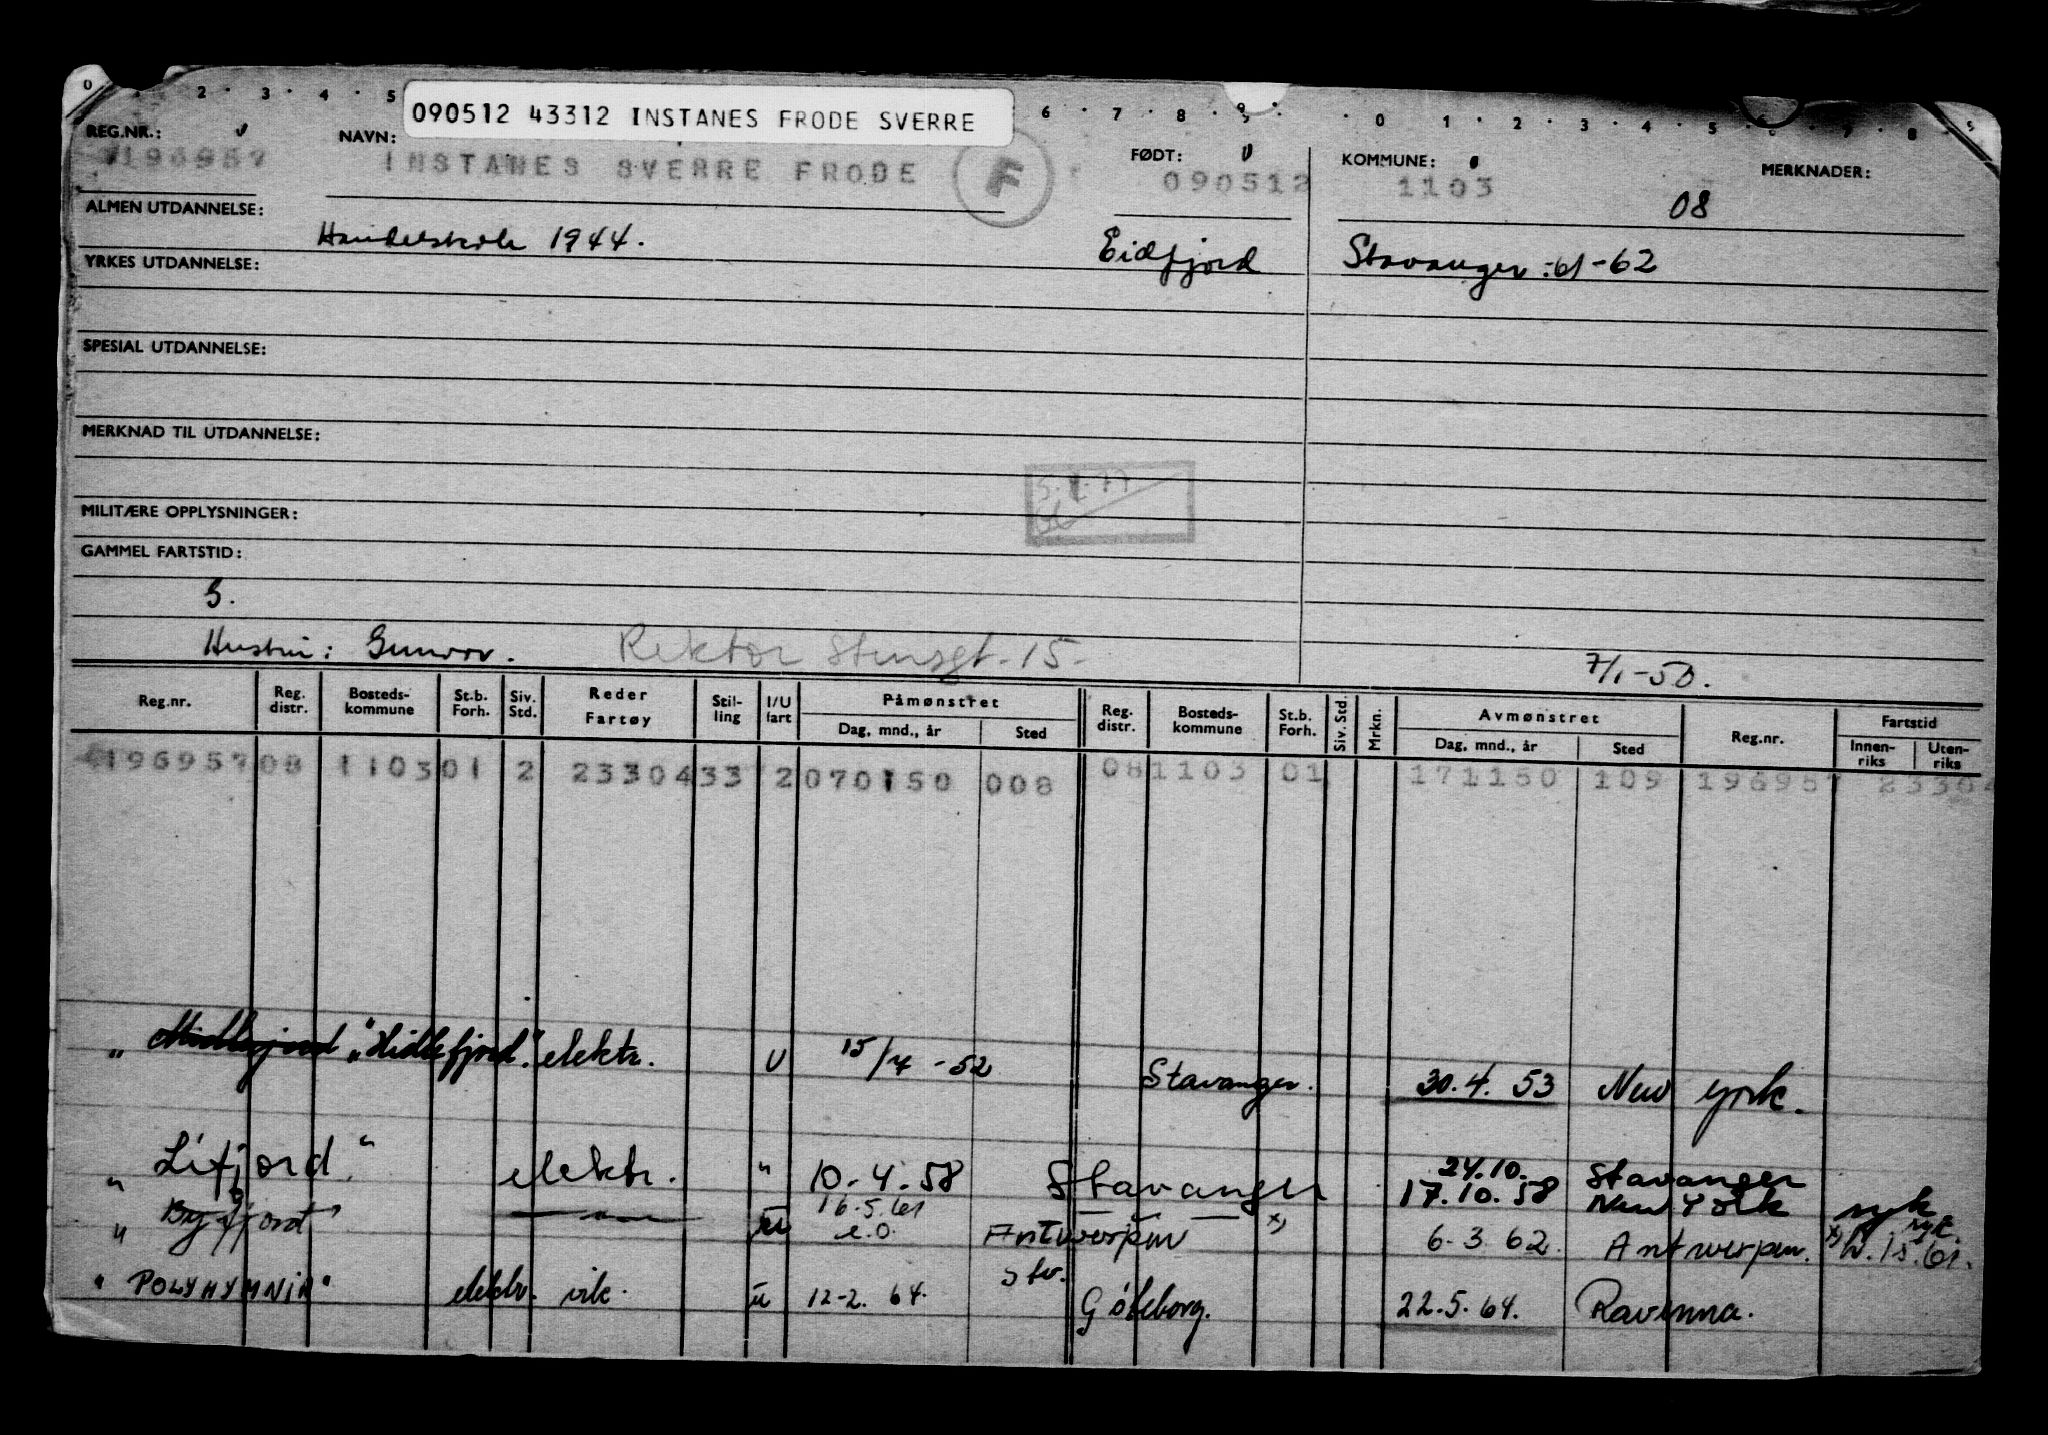 0 2 · 3 · 4 · 5 6 · 7 · 8 · 9 · 0 1 · 2 · 3 · 4 · 5 · 6 · 7 · 8 · 5
090512 43312 INSTANES FRODE SVERRE
REG.NR.: NAVN: FØDT: KOMMUNE: MERKNADER:
196957 INSTANES SVERRE FRODE F 090512 1103
08
ALMEN UTDANNELSE:
Handelskole 1944. Eidfjord Stavanger -61-62
YRKES UTDANNELSE:
SPESIAL UTDANNELSE:
MERKNAD TIL UTDANNELSE:
MILITÆRE OPPLYSNINGER:
GAMMEL FARTSTID:
3.
Hustru: Gunvor. Rektor Stensgt. 15- 7/1-50.
Reg.nr. Reg. distr. Bosteds- kommune St.b. Forh. Siv. Std. Reder Fartøy Stil- ling I/U fart Påmønstret Dag, mnd., år Sted Reg. distr. Bosteds- kommune St.b. Forh. Siv. Std. Mrkn. Avmønstret Dag, mnd., år Sted Reg.nr. Fartstid Innen- riks Uten- riks
196957 08 1103 01 2 2330433 2 070150 008 08 1103 01 171150 109 196957 2330
" "Hidlefjord." elektr. U 15/7 -52 Stavanger. 30.4.53 New York.
24.10. Stavanger
" Lifjord." elektr. " 10.4.58 Stavanger 17.10.58 New York syk
16.5.61
" Bygfjord" u e.o. Antwerpen x) 6.3 62. Antwerpen.
Stv.
" POLYHYMNIA" elektr. vik. u 12-2. 64. Göteborg. 22.5.64. Ravenna.